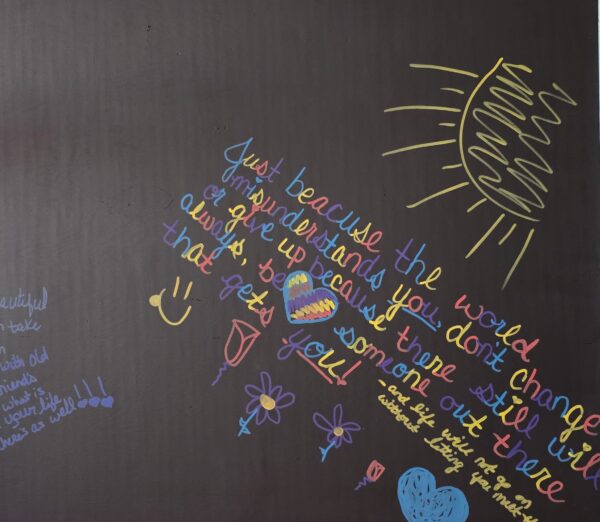 Just beacuse the world
misunderstands you, don't change
or give up because there still will
always, be someone out there
that gets you!
-and life will not go on
without letting you meet
autiful
take
with old
what is
your life
as well!!!